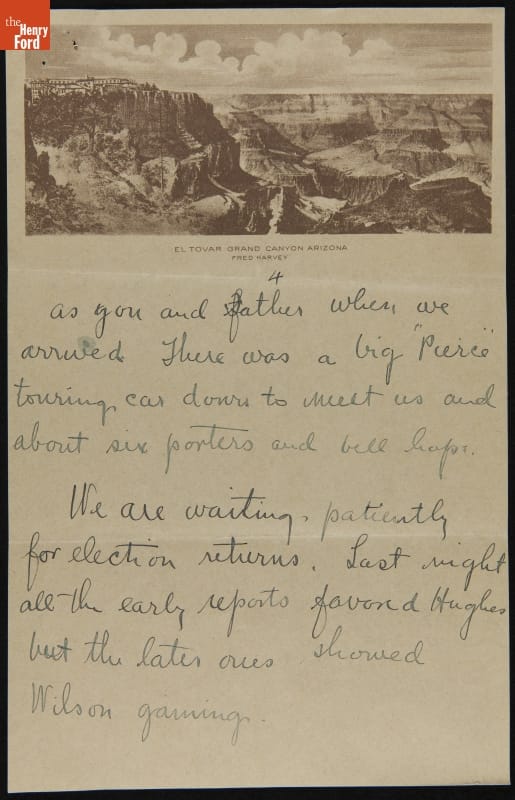 the
Henry
Ford
EL TOVAR GRAND CANYON ARIZONA
FRED HARVEY
4
as you and father when we
arrived. There was a big "Pierce"
touring car down to meet us and
about six porters and bell hops.
We are waiting patiently
for election returns. Last night
all the early reports favored Hughes
but the later ones showed
Wilson gaining.